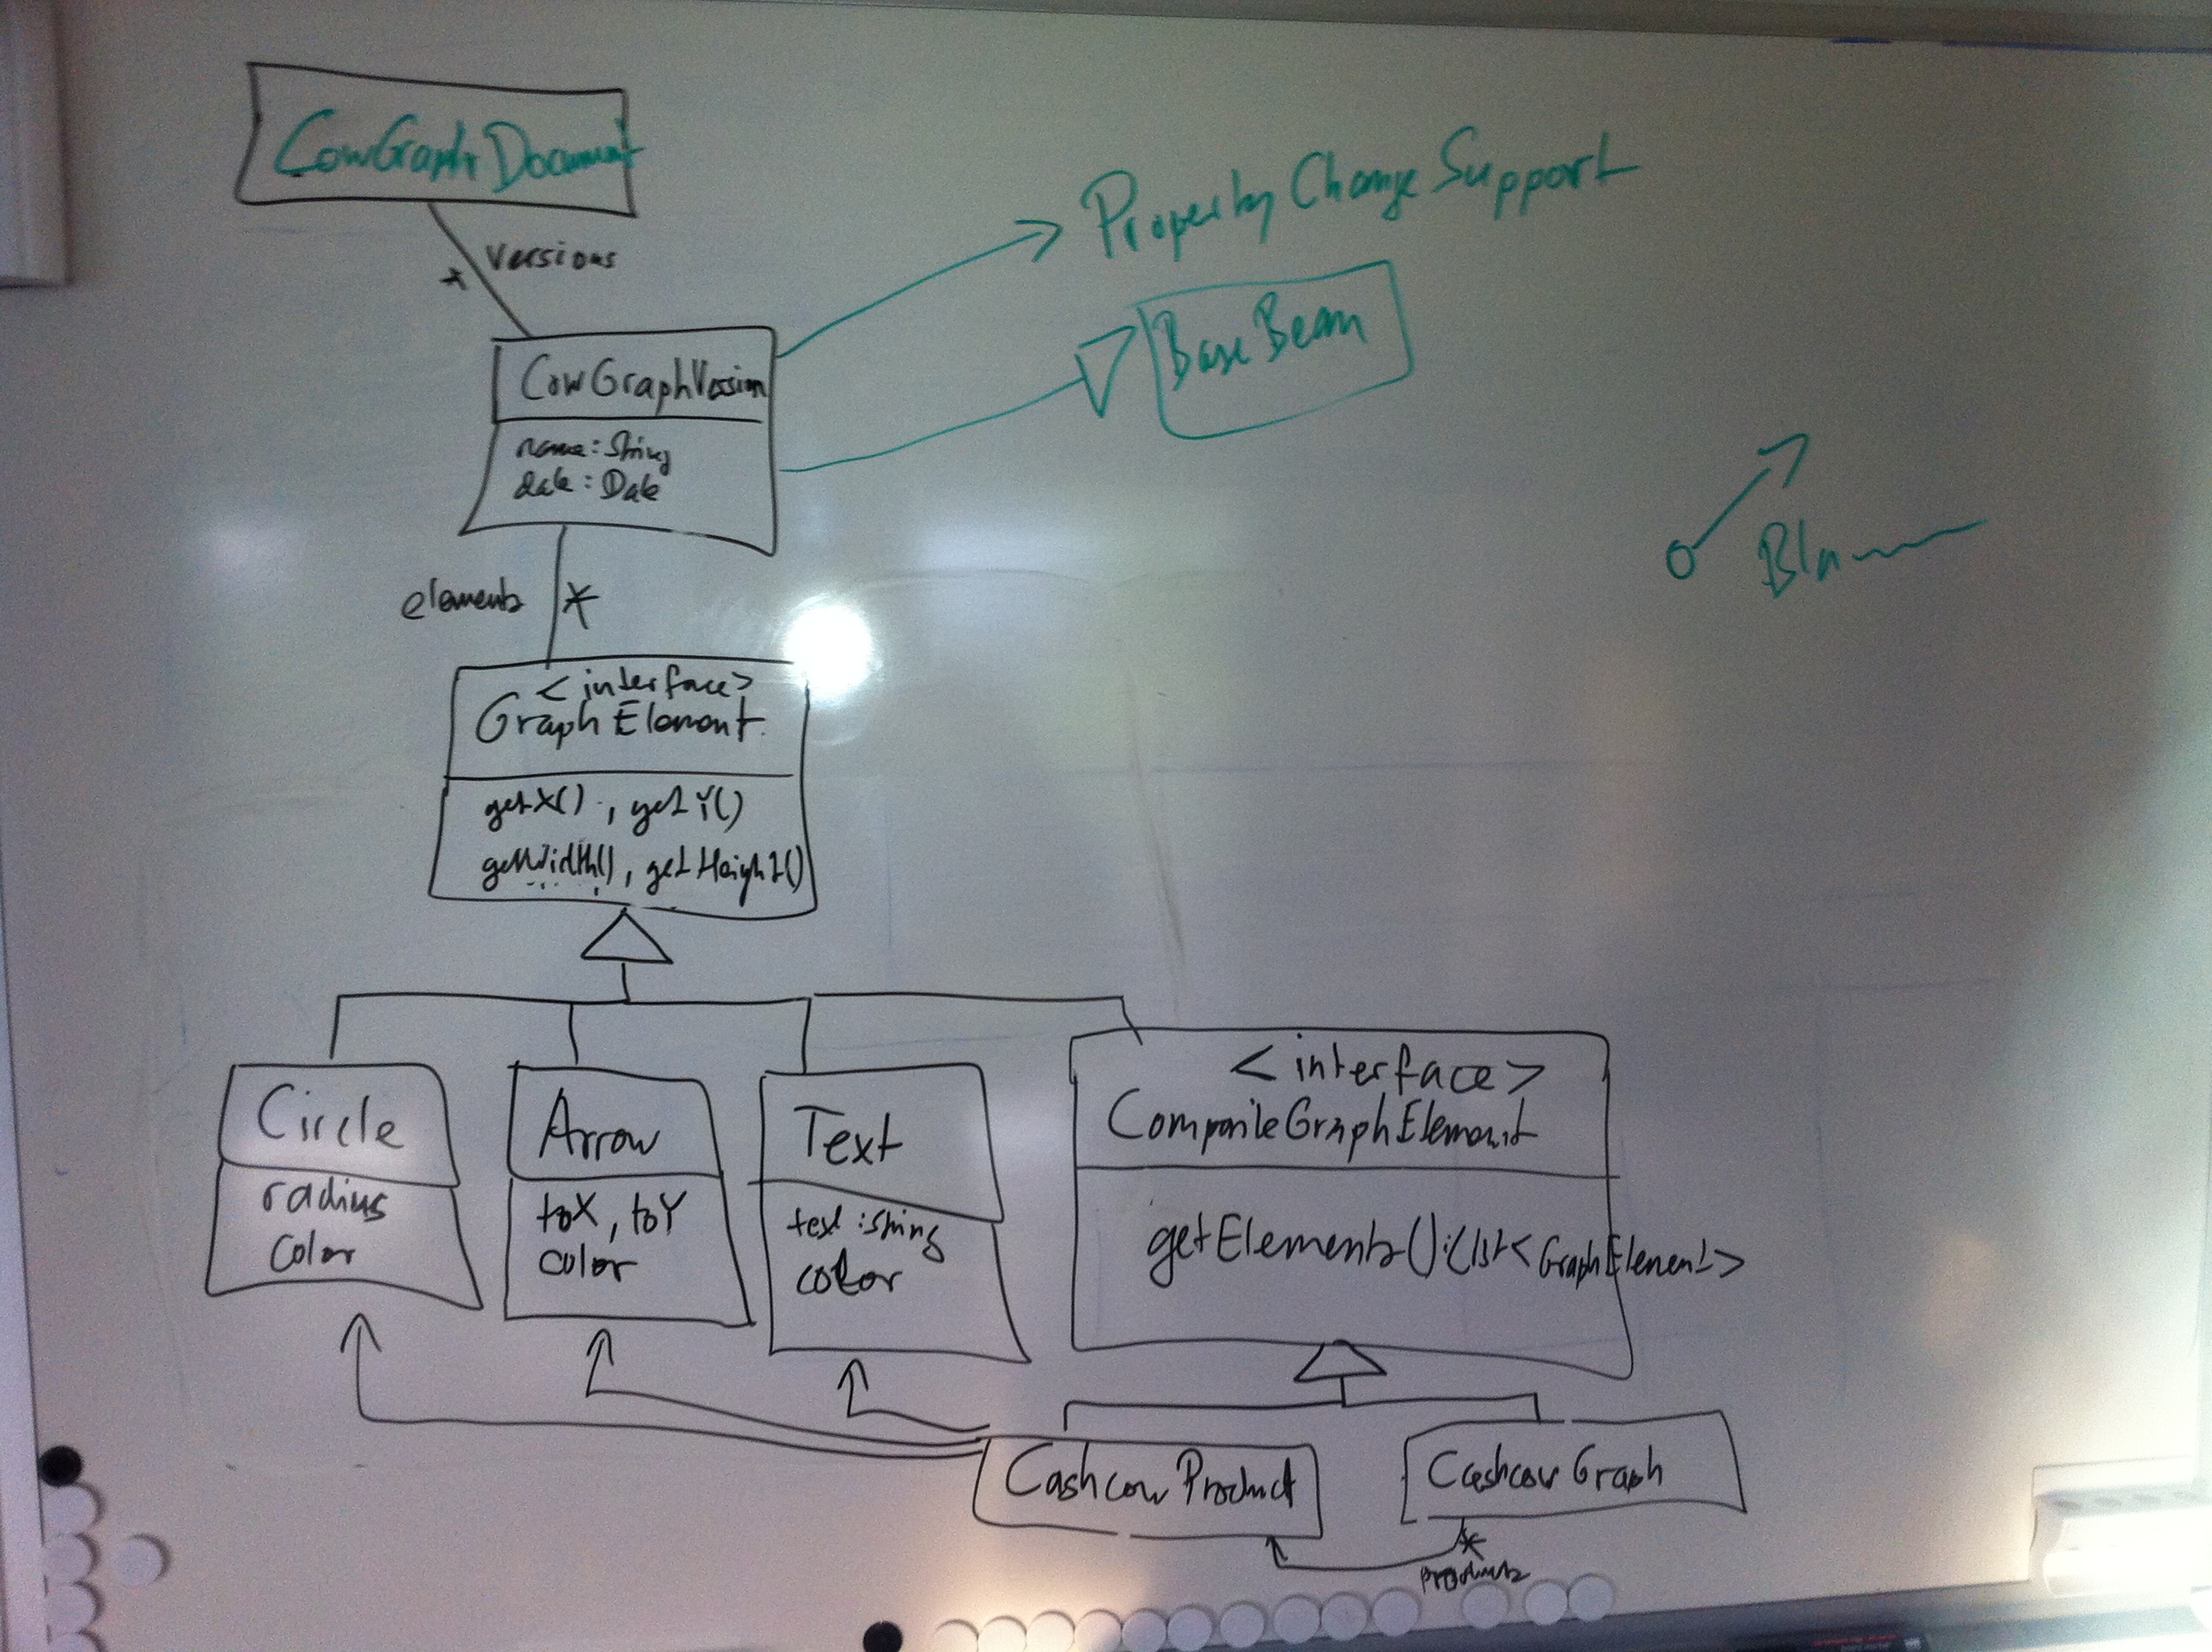 CowGraphDocument
versions
*
PropertyChangeSupport
BaseBean
CowGraphVersion
name: String
date: Date
elements
*
<interface>
GraphElement
getX(), getY()
getWidth(), getHeight()
Circle
radius
color
Arrow
toX, toY
color
Text
text: String
color
<interface>
CompositeGraphElement
getElements(): List<GraphElement>
Cashcow Product
Cashcow Graph
*
products